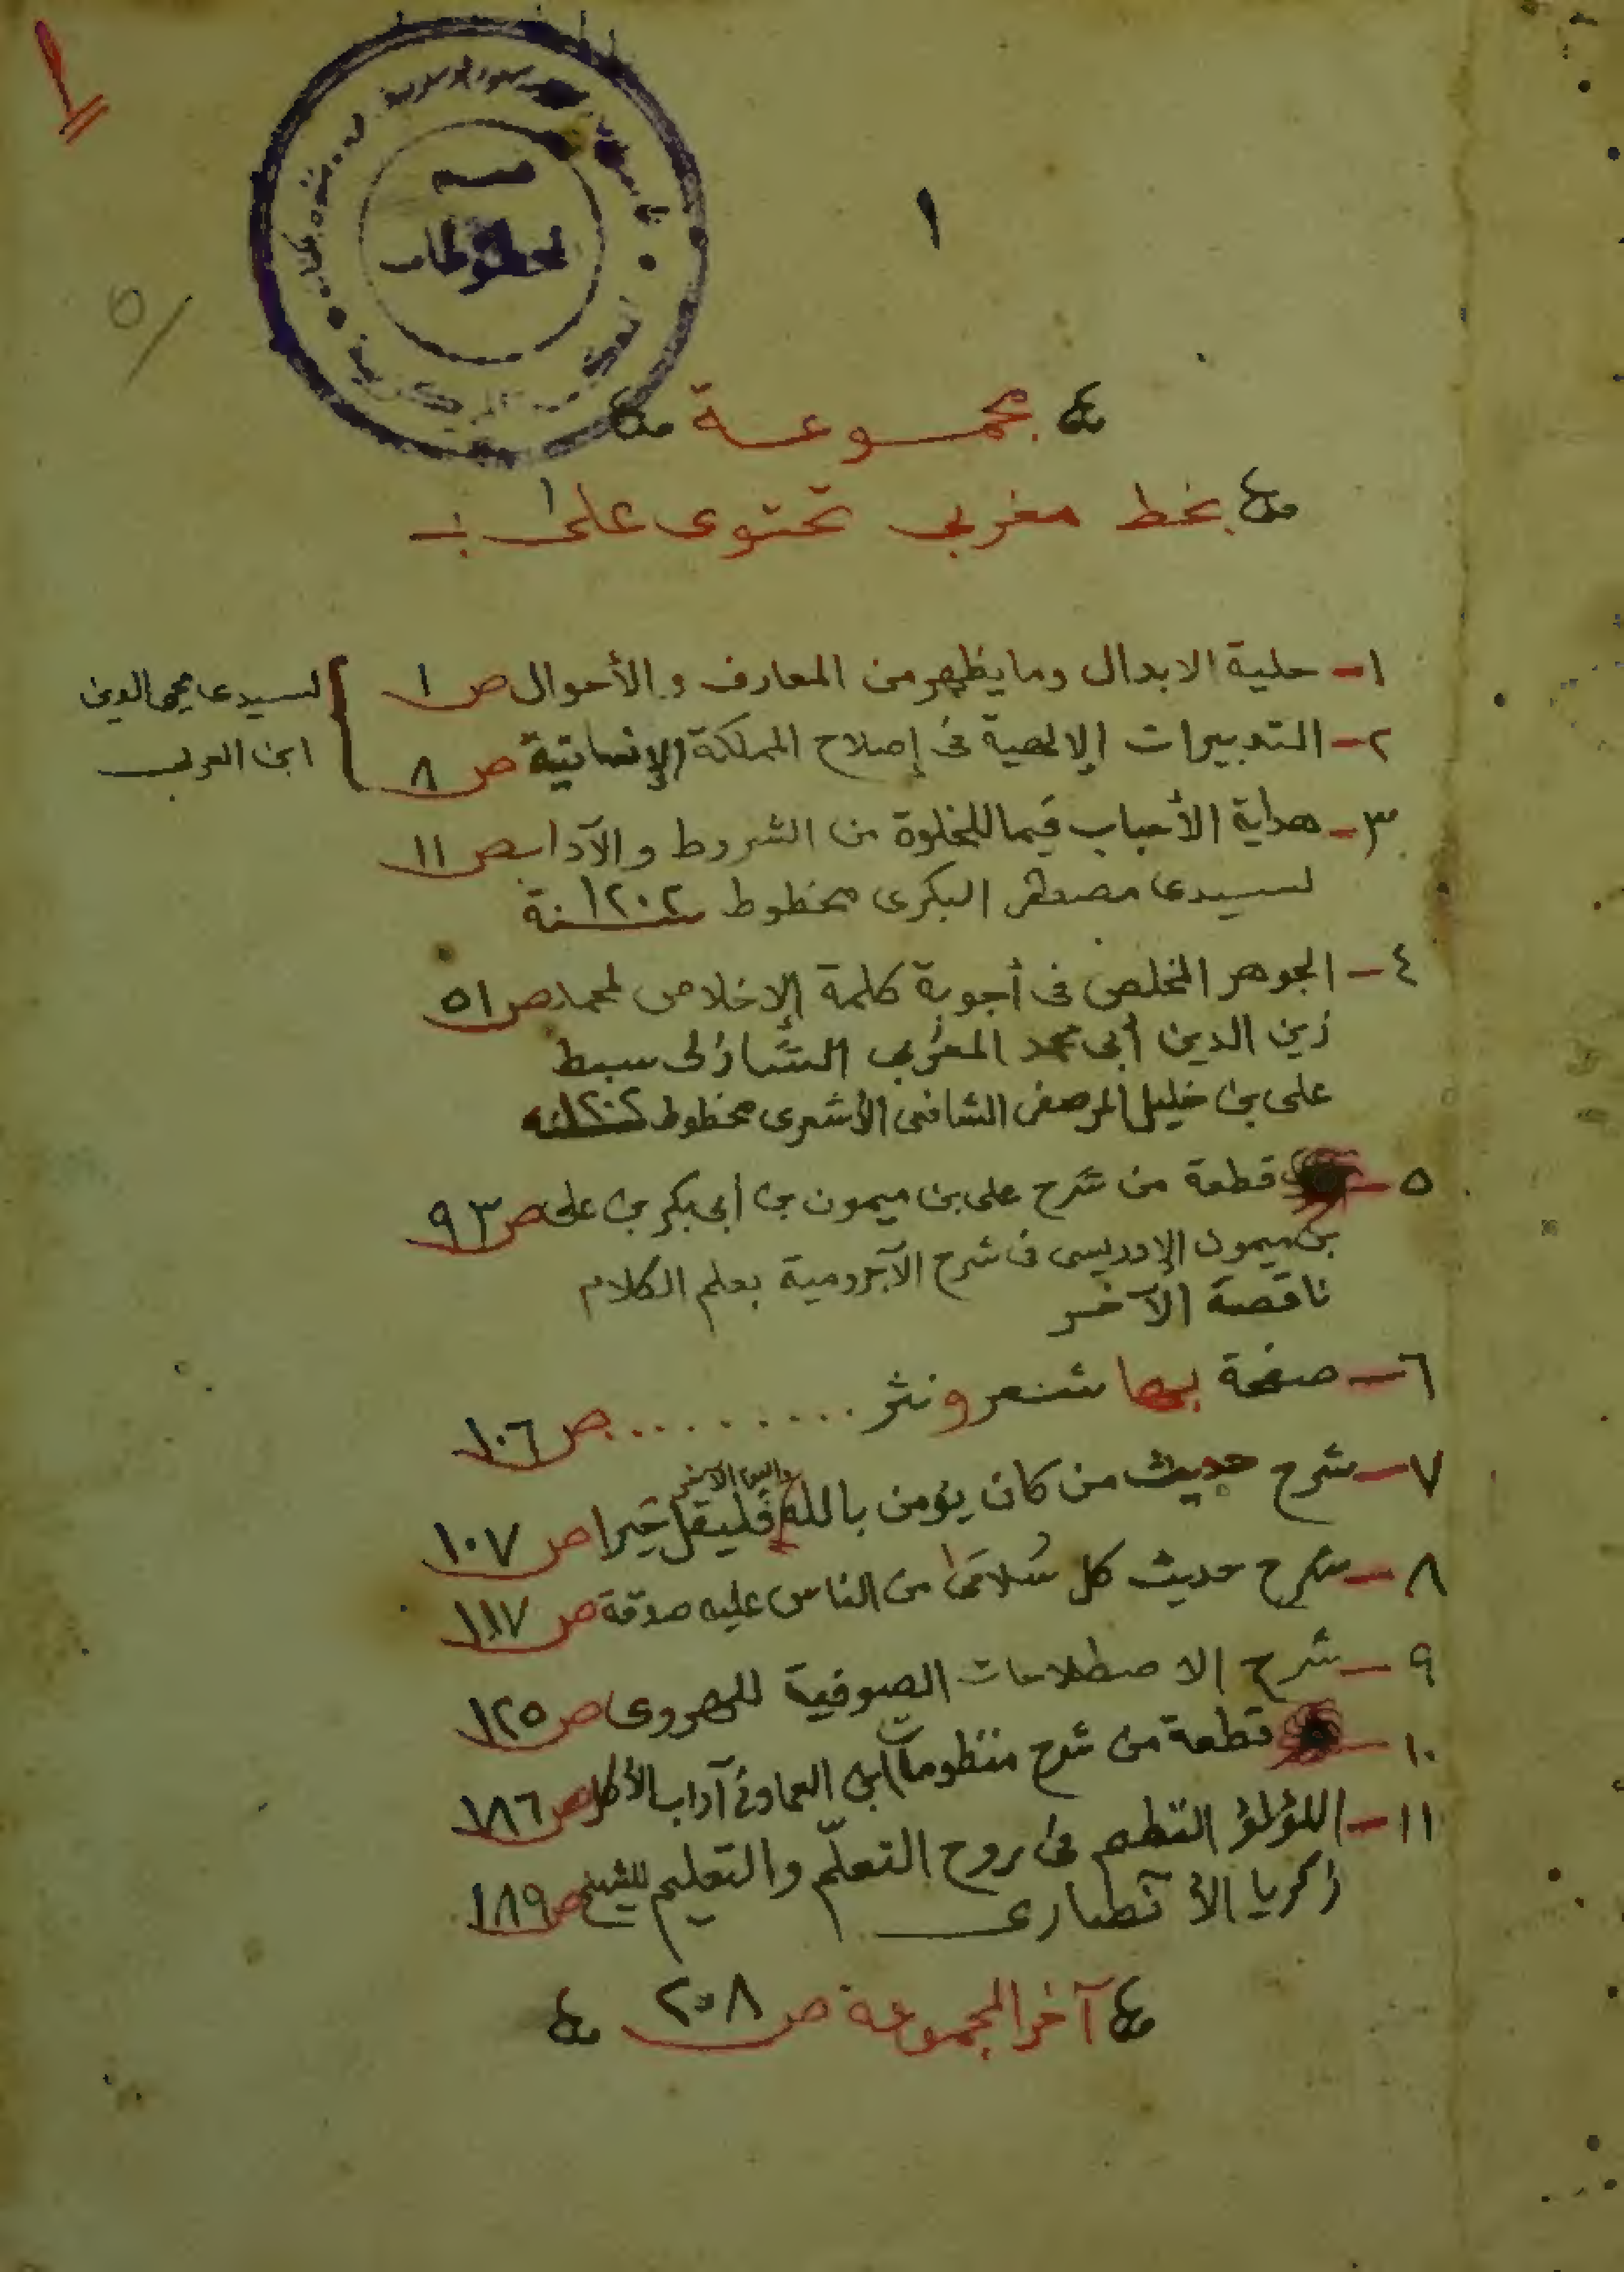 ١
قسم
المخطوطات
مجموعة
بخط مغربي تحتوى على :
١- حلية الابدال وما يظهر من المعارف والأحوال ص ١
لسيدى محي الدين
٢- التدبيرات الإلهية فى إصلاح المملكة الإنسانية ص ٨
ابن العربي
٣- هداية الأحباب فيما للخلوة من الشروط والآداب ص ١١
لسيدى مصطفى البكرى مخطوط سنة ١٢٠٢
٤- الجوهر المخلص فى أجوبة كلمة الإخلاص لمحمد ص ٥١
زين الدين أبى محمد المغربي الشاذلى سبط
على بن خليل المرصفى الشافعى الأشعرى مخطوط سنة ١٢٠٢
٥- قطعة من شرح على بن ميمون بن أبى بكر بن على ص ٩٣
بن ميمون الإدريسى فى شرح الآجرومية بعلم الكلام
ناقصة الآخر
٦- صفحة بها شعر ونثر ......... ص ١٠٦
٧- شرح حديث من كان يؤمن بالله واليوم الآخر فليقل خيرا ص ١٠٧
٨- شرح حديث كل سُلامَى من الناس عليه صدقة ص ١١٧
٩- شرح الاصطلاحات الصوفية للهروى ص ١٢٥
١٠- قطعة من شرح منظومات ابن العماد فى آداب الأكل ص ١٨٦
١١- اللؤلؤ النظيم فى روح التعلّم والتعليم للشيخ ص ١٨٩
زكريا الأنصارى
آخر المجموعة ص ٢٠٨